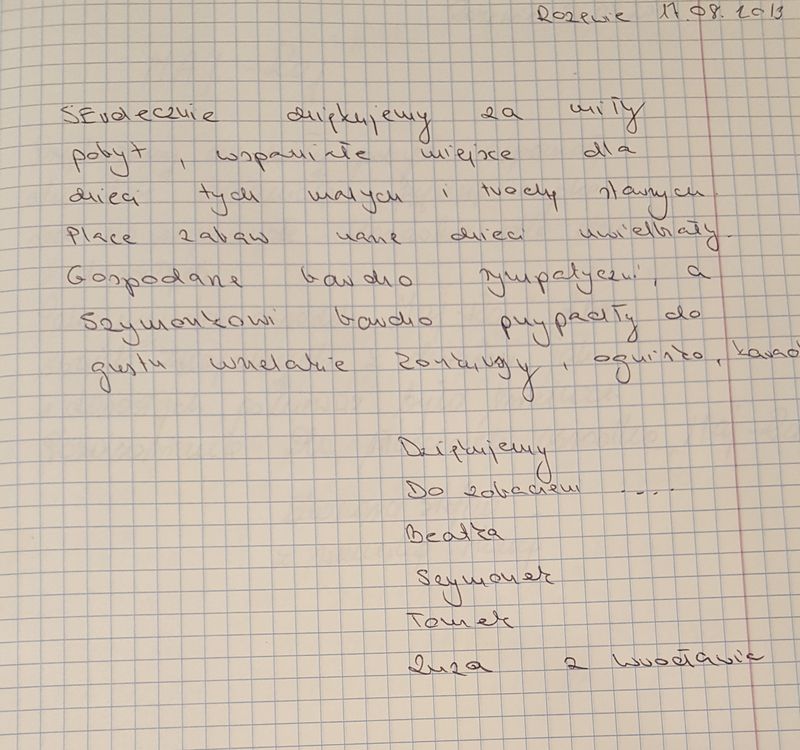 Rozewie 17.08.2013
Serdecznie dziękujemy za miły
pobyt, wspaniałe miejsce dla
dzieci tych małych i trochę starszych
Place zabaw nasze dzieci uwielbiały.
Gospodarze bardzo sympatyczni, a
Szymonkowi bardzo przypadły do
gustu wszelakie
Dziękujemy
Do zobaczenia ....
Beatka
Szymonek
Tomek
Zuza z Wrocławia